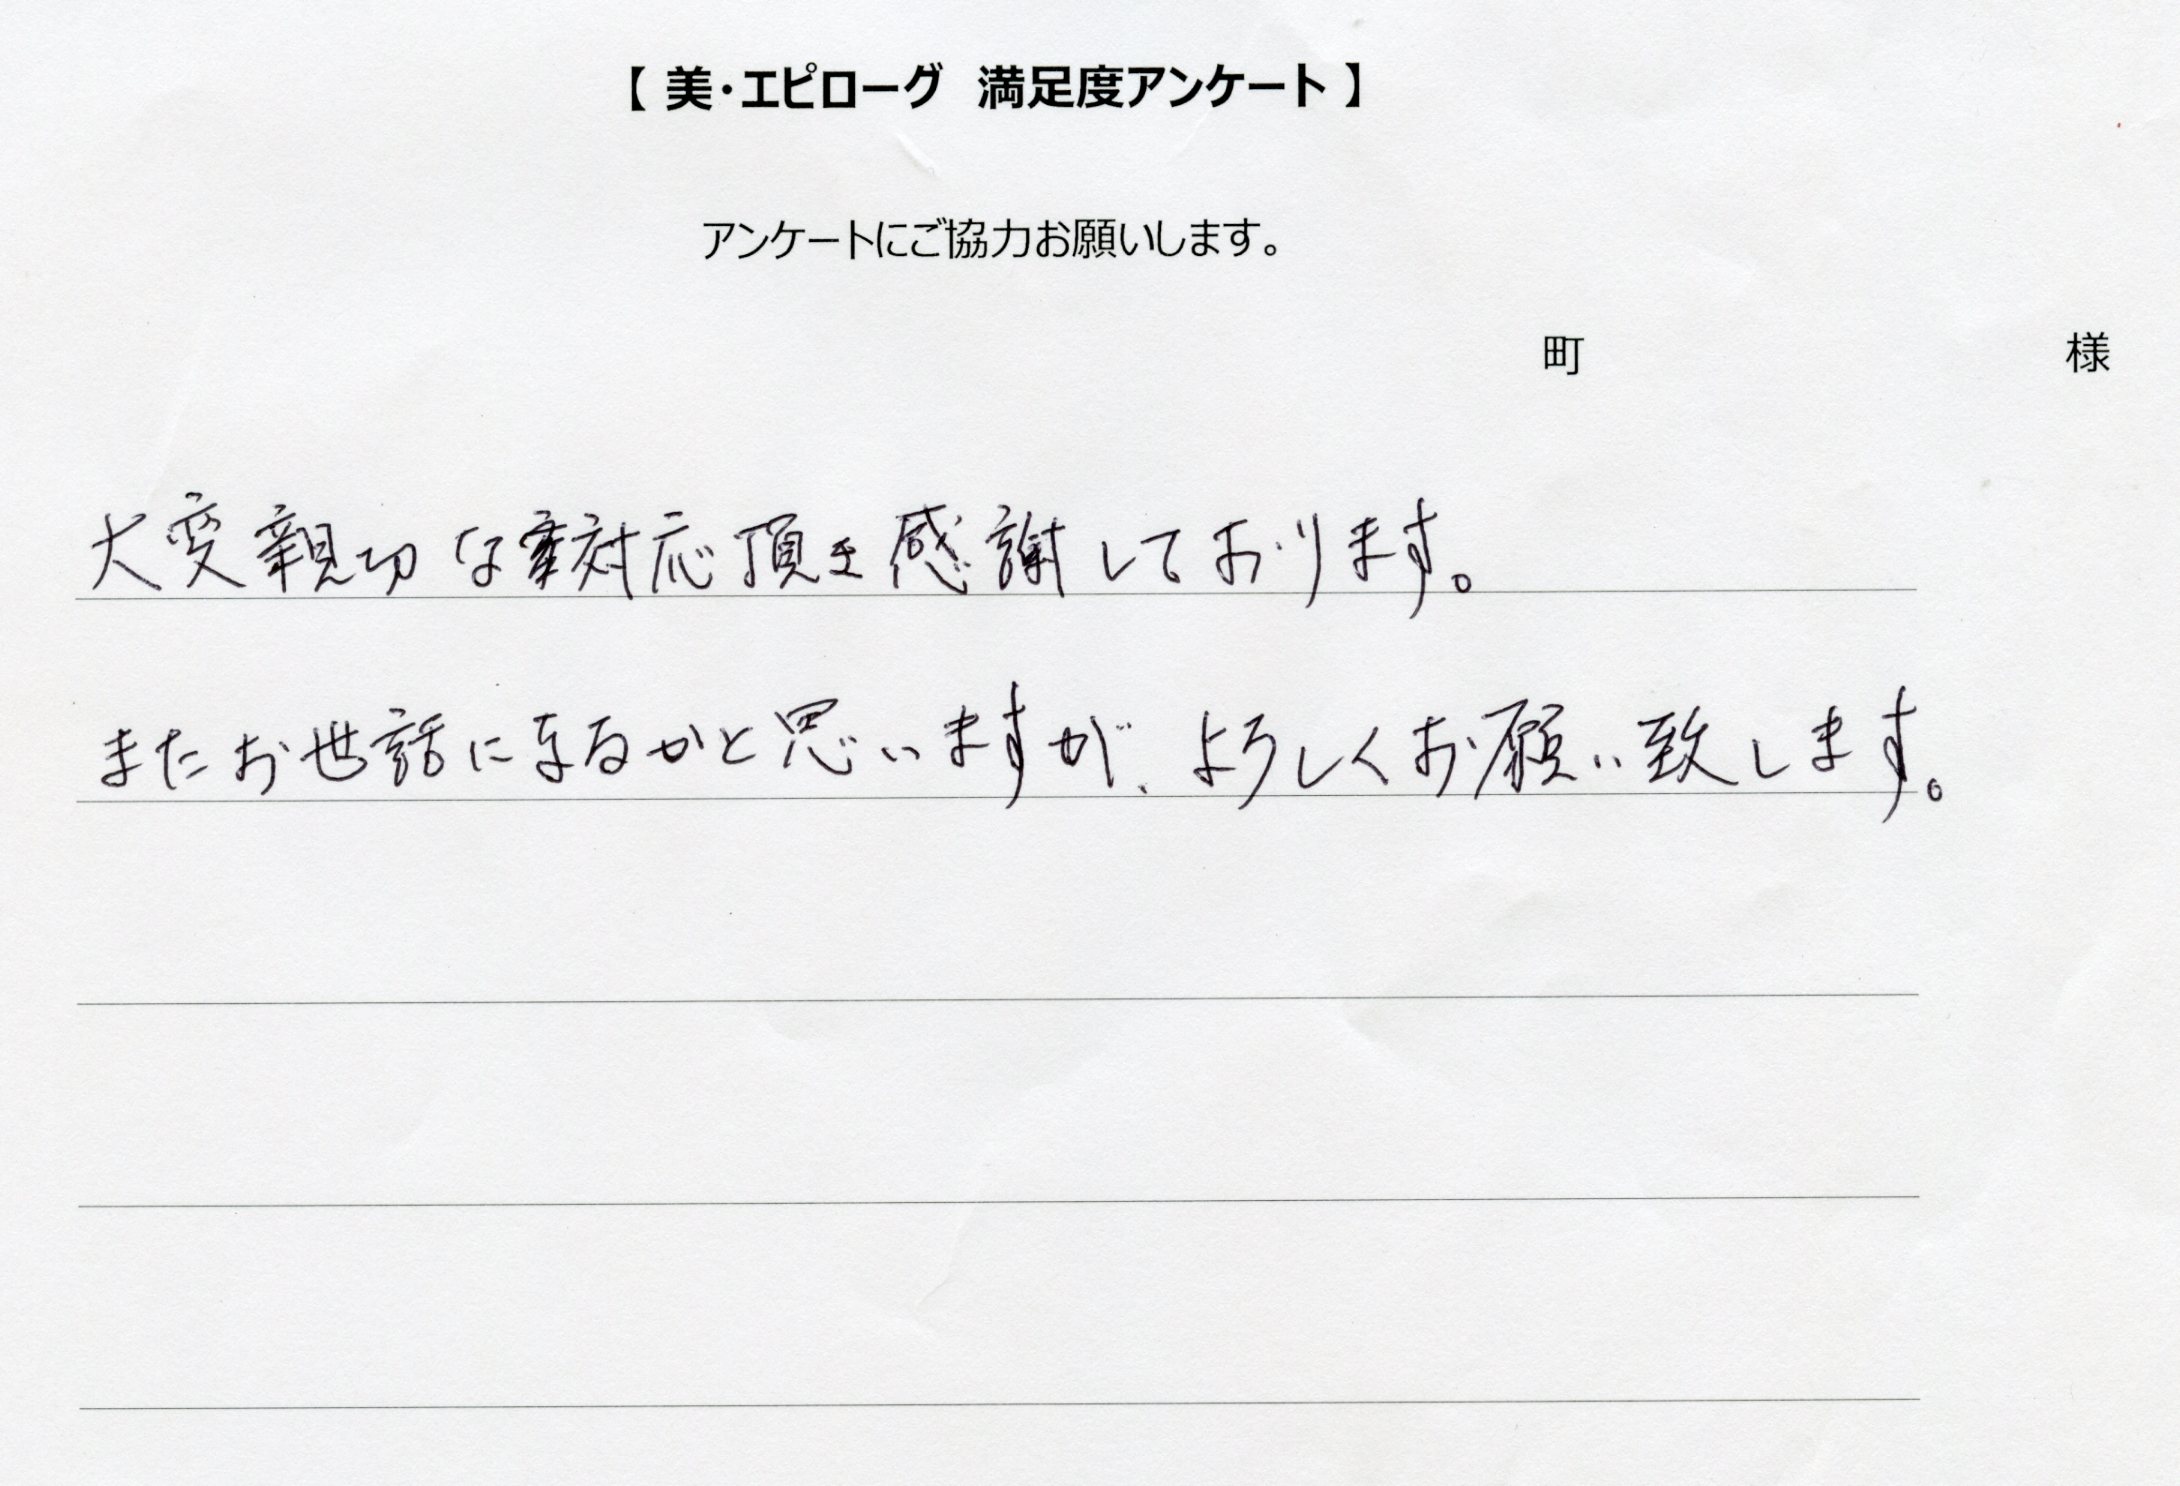 【 美・エピローグ 満足度アンケート 】
アンケートにご協力お願いします。
町 様
大変親切な対応頂き感謝しております。
またお世話になるかと思いますが、よろしくお願い致します。